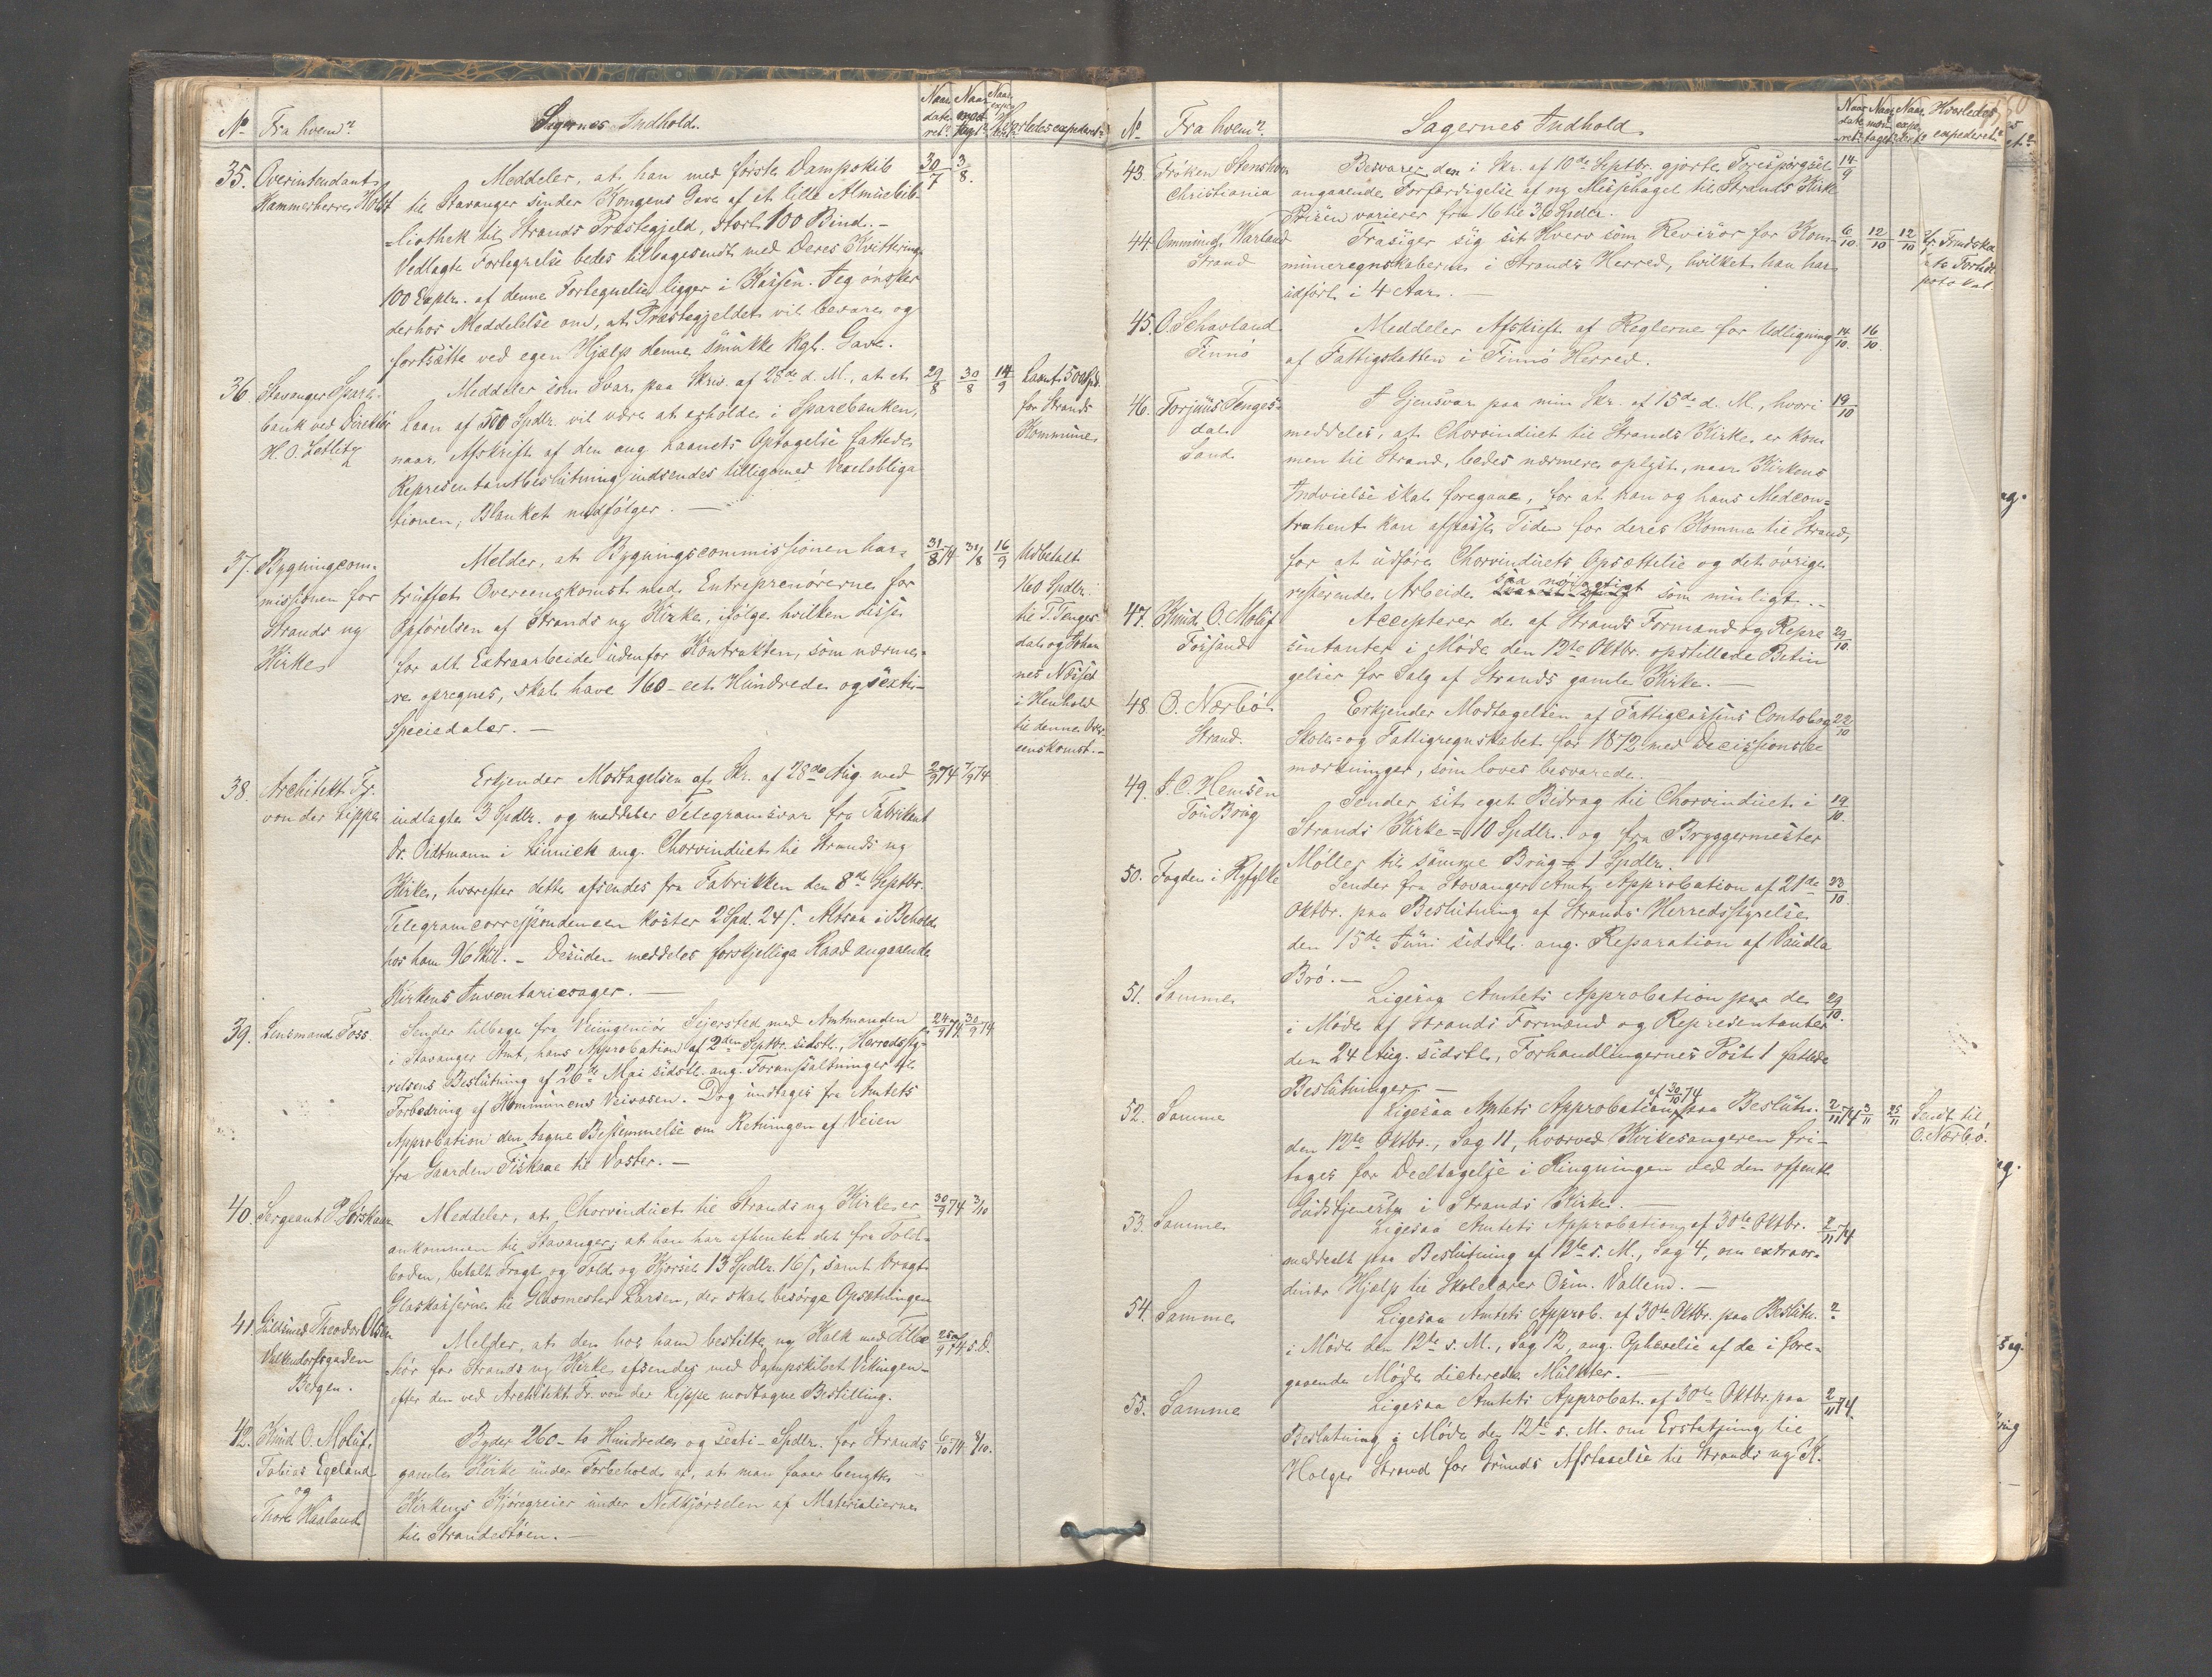 No Fra hvem? Sagernes Indhold. Naar dateret? Naar modtaget? Naar exped? Hvorledes expederet?
35. Overintendant Kammerherre Holst
Meddeler, at han med første Dampskib 30/7 3/8.
til Stavanger sender Kongens Gave af et lille Almuebib-
=liothek til Strands Præstegjeld, stort 100 Bind. –
Vedlagte Fortegnelse bedes tilbagesendt med Deres Kvittering
100 Explr. af denne Fortegnelse ligger i Kassen. Jeg ønsker
derhos Meddelelse om, at Præstegjeldet vil bevare og
fortsætte ved egen Hjælp denne smukke Kgl. Gave.
36. Stavanger Spare-
bank ved Direktør
H. O. Zetlitz
Meddeler som Svar paa Skriv. af 28de d. M., at et 29/8 30/8 14/9
Laan af 500 Spdlr. vil være at erholde i Sparebanken,
naar Afskrift af den ang Laanets Optagelse fattede
Representantbeslutning indsendes tilligemed Vexelobliga
tionen, Blanket medfølger. –
Laant 500 Spd.
for Strands
Kommune
37. Bygningscom-
missionen for
Strands ny
Kirke
Melder, at Bygningscommissionen har 31/8 74 31/8 16/9
truffet Overeenskomst med Entreprenørerne for
Opførelsen af Strands ny Kirke, ifølge hvilken disse
for alt Extraarbeide udenfor Kontrakten, som nærme-
re opregnes, skal have 160 – eet Hundrede og sexti –
Speciedaler. –
Udbetalt
160 Spdlr.
til T. Tenges
dal og Johan
nes Nøsset
i Henhold
til denne Over
eenskomst. –
38. Architekt Fr.
von der Lippe
Erkjender Modtagelsen af Skr. af 28de Aug. med 2/9 74 7/9 74
indlagte 3 Spdlr. og meddeler Telegramsvar fra Fabrikant
Dr. Oidtmann i Linnich ang. Chorvinduet til Strands ny
Kirke, hvorefter dette afsendes fra Fabrikken den 8de Septbr.
Telegramcorrespondencen koster 2 Spd. 24 s. Altsaa i Behold
hos ham 96 Skil. – Desuden meddeles forskjellige Raad angaaende
Kirkens Inventariesager. –
39. Lensmand Foss
Sender tilbage fra Veiingeniør Sejersted med Amtmanden 24/9 74 30/9 74
i Stavanger Amt, hans Approbation af 2den Septbr. sidstl., Herredssty-
relsens Beslutning af 26de Mai sidstl. ang. Foranstaltninger til
Forbedring af Kommunens Veivæsen. Dog undtages fra Amtets
Approbation den tagne Bestemmelse om Retningen af Veien
fra Gaarden Fiskaae til Voster. –
40. Sergeant P. Sørskaar
Meddeler, at Chorvinduet til Strands ny Kirke er 30/9 74 3/10
ankommen til Stavanger; at han har afhentet det fra Told-
boden, betalt Fragt og Told og Kjørsel 13 Spdlr. 16 s, samt bragt
Glaskasserne til Glasmester Larsen, der skal besørge Opsætningen
41. Guldsmed Theodor Olsen
Valkendorfsgaden
Bergen.
Melder, at den hos ham bestilte ny Kalk med Tilbe 25/9 74 s. D.
hør for Strands ny Kirke afsendes med Dampskibet Vikingen
efter den ved Architekt Fr. von der Lippe modtagne Bestilling.
42. Knud O. Moluf,
Tobias Egeland
og
Thore Haaland
Byder 260 – to Hundrede og sexti – Spdlr. for Strands 6/10 74. 8/10.
gamle Kirke under Forbehold af, at man faaer benytte
Kirkens Kjøregreier under Nedkjørselen af Materialierne
til Strandestøen. –
No Fra hvem? Sagernes Indhold Naar dateret? Naar modtaget? Naar expedert? Hvorledes expederet?
43. Frøken Stenshorn
Christiania
Besvarer den i Skr. af 10de Septbr. gjorte Forespørgsel 14/9
angaaende Forfærdigelse af ny Messehagel til Strands Kirke
Prisen varierer fra 16 til 36 Spdlr.
44. Ommund Warland
Strand
Frasiger sig sit Hverv som Revisor for Kom- 6/10 12/10 12/10
muneregnskaberne i Strands Herred, hvilket han har
udført i 4 Aar. –
45. O. Schavland
Finnø
Meddeler Afskrift af Reglerne for Udligning 14/10. 16/10.
af Fattigskatten i Finnø Herred.
46. Torjuus Tenges-
dal
Sand
I Gjensvar paa min Skr. af 15de d. M., hvori 19/10
meddeles, at Chorvinduet til Strands Kirke er kom
men til Strand, bedes nærmere oplyst, naar Kirkens
Indvielse skal foregaae, for at han og hans Medcon-
trahent kan afpasse Tiden for deres Komme til Strand,
for at udføre Chorvinduets Opsættelse og det øvrige
resterende Arbeide saa nøiagtigt som muligt. –
47. Knud O. Moluf
Fossand
Accepterer de af Strands Formænd og Repre 29/10.
sentanter i Møde den 12te Oktbr. opstillede Betin
gelser for Salg af Strands gamle Kirke. –
48. O. Nærbø
Strand.
Erkjender Modtagelsen af Fattigcassens Contobog 22/10
Skole- og Fattigregnskabet for 1872 med Decissionsbe
mærkninger, som loves besvarede.
49. J. C. Hemsen
Tou Brug
Sender sit eget Bidrag til Chorvinduet i 19/10.
Strands Kirke = 10 Spdlr. og fra Bryggermester
Møller til samme Brug = 1 Spdlr.
50. Fogden i Ryfylke
Sender fra Stavanger Amt Approbation af 21de 23/10.
Oktbr. paa Beslutning af Strands Herredsstyrelse
den 15de Juni sidstl. ang. Reparation af Vaudla
Bro. –
51. Samme
Ligesaa Amtets Approbation paa de 29/10.
i Møde af Strands Formænd og Representanter
den 24 Aug. sidstl., Forhandlingernes Post 1 fattede
Beslutninger. –
52. Samme
Ligesaa Amtets Approbation af 30/10 74 paa Beslutn. 2/11 74 3/11 25/11 Sendt til
O. Nærbø.
den 12te Oktbr., Sag 11, hvorved Kirkesangeren fri-
tages for Deeltagelse i Ringningen ved den offentl
Gudstjeneste i Strands Kirke. –
53. Samme
Ligesaa Amtets Approbation af 30te Oktbr. 2/11 74
meddeelt paa Beslutning af 12te s. M., Sag 4, om extraor-
dinær Hjælp til Skolelærer Osm. Valland. –
54. Samme
Ligesaa Amtets Approb. af 30te Oktbr. paa Beslutn. "
i Møde den 12te s. M., Sag 12, ang. Ophævelse af de i fore-
gaaende Møde dicterede Mulkter. –
55. Samme
Ligesaa Amtets Approbat. af 30te Oktbr. paa 2/11 74.
Beslutning i Møde den 12te s. M. om Erstatning til
Holger Strand for Grunds Afstaaelse til Strands ny K.